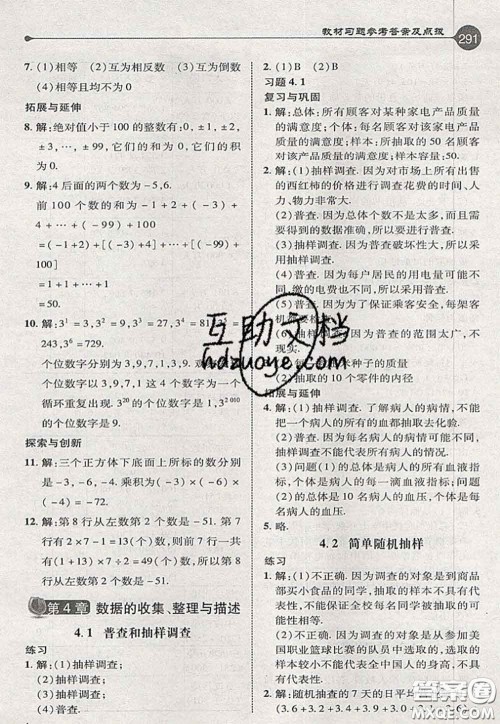 教材习题参考答案及点拨
291
7. (1)相等 (2)互为相反数 (3)互为相反数
(4)相等且均不为0
拓展与延伸
8. 解:绝对值小于100的整数有:0,±1,±2,
±3,…,±99,它们的和为0,它们的积
为0.
9. 解:4后面的两个数为-5,6.
前100个数的和为-1+2+(-3)+
4+(-5)+6+…+(-99)+100
=[(-1)+2]+[(-3)+4]+
[(-5)+6]+…+[(-99)+
100]
=1+1+…+1
=50.
10. 解:3¹=3,3²=9,3³=27,3⁴=81,3⁵=
243,3⁶=729.
个位数字分别为3,9,7,1,3,9.
个位数字以3,9,7,1为一个
循环重复出现. 3²⁰的个位数字为1,3²⁰¹⁰
的个位数字是9.
探索与创新
11. 解:三个正方体下底面上所标的数分别
是-3,-5,-2.
(-3)+(-5)+(-2)=-10.
12. 解:第8行从左数第2个数是-51.第7
行有2×7-1=13(个)数,前7行共有
(1+13)×7÷2=49(个)数,所以第8行
从左数第2个数是-51.
第4章 数据的收集、整理与描述
4.1 普查和抽样调查
练习
1. 解:(1)抽样调查;
(2)抽样调查;
(3)抽样调查;
(4)普查.
2. (1)B (2)B
习题4.1
复习与巩固
1. 解:总体:所有顾客对某种家电产品质量
的满意度;个体:每名顾客对该家电产品质
量的满意度;样本:所抽取的50名顾客对
该家电产品质量的满意度;样本容量:50.
2. 解:(1)抽样调查.因为对市场上所有
的西红柿的价格进行调查花费的时间、人
力、物力非常大.
(2)普查.因为本班的人数不是太多,而且需
要得到的数据准确.
(3)抽样调查.因为普查破坏性大,所以
采用抽样调查.
(4)普查.因为每户居民的用电量可能不
同,缴的电费也可能不同.
(5)普查.因为为了保证乘客安全,每位乘
(6)抽样调查.因为普查的范围太广,不
现实.
种子的质量
(2)抽取的10个零件的内径
拓展与延伸
4. 解:(1)抽样调查.了解病人的病情,不可
能把一个病人的所有的血都抽取去化验.
(2)普查.因为每个病人的病情不同,抽样
调查不能代表所有病人的情况.
(3)问题(1)的总体是病人的血液,样本是
所抽取的血液;问题(2)的总体是10名病
人的血压,个体是每名病人的血压.
5. 略.
4.2 简单随机抽样
练习
1. 解:(1)不正确.因为调查的对象是到商品
部买小食品的学生,可能有的同学从不买
零食,这个样本不能代表全校同学每周购
(2)不正确.因为调查的对象是所有的美国
职业篮球比赛的队员,范围
样本中的队员
2. 解:随机抽查的7天的日平均
互助文档
hdzuoye.com
答案圈
MXQE.COM